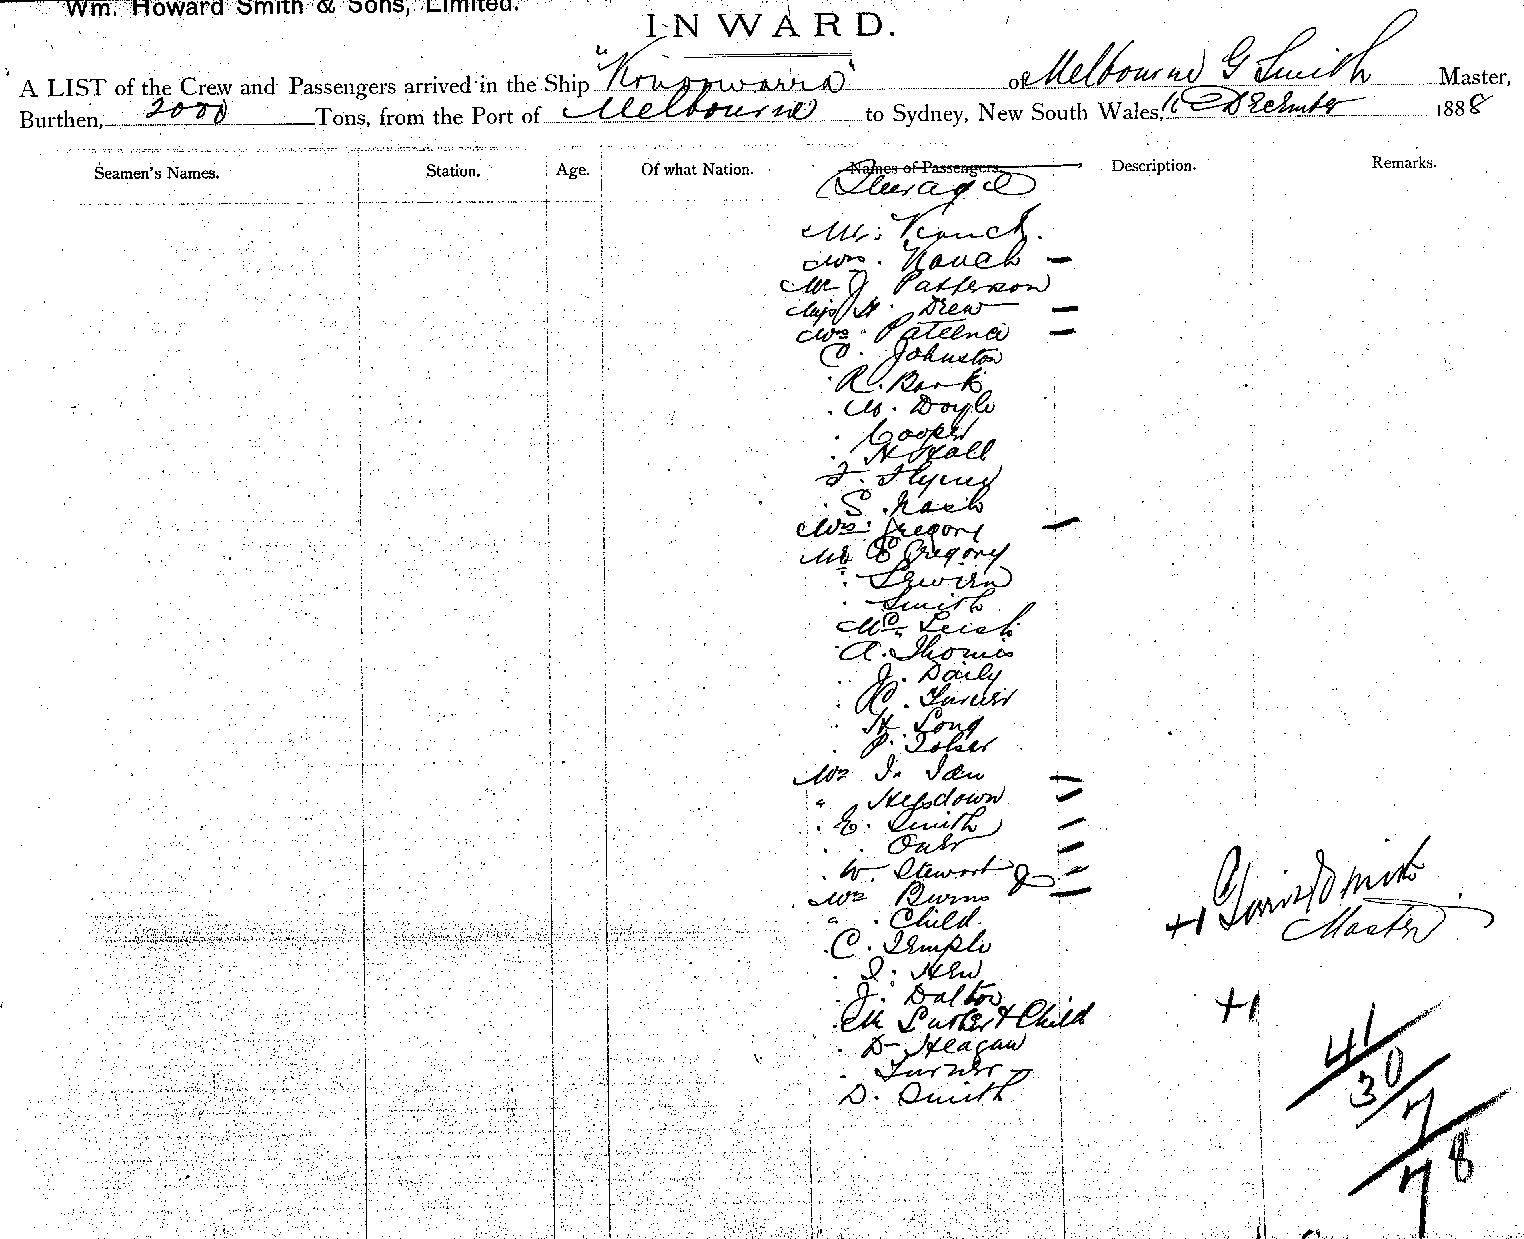 Wm. Howard Smith & Sons, Limited.
INWARD.
A LIST of the Crew and Passengers arrived in the Ship "Konoowarra" of Melbourne G Smith Master,
Burthen, 2000 Tons, from the Port of Melbourne to Sydney, New South Wales, 16 December 1888
Seamen's Names. Station. Age. Of what Nation. Names of Passengers. Description. Remarks.
Steerage
Mr.
Mrs.
Mr J Patterson
Miss H. Drew
Mrs. Pateena
C. Johnston
R. Bark
M. Doyle
Cooper
H Hall
F.
S. Nash
Mrs Gregory
Mr E Gregory
Smith
A. Thomas
J. Daily
Turner
H. Long
P.
Mrs J.
" Helsdown
E. Smith
W. Stewart
Mrs Burns
" Child
C. Temple
New
J. Dalton
& Child
D Heagan
Turner
D. Smith
+1 Smith
Master
+1
41
30
7
78